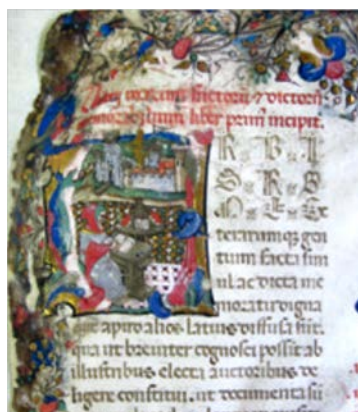 maximi
liber primꝰ incipit.
R B I
S R O
M E Ex
terarumqꝫ gen
tium facta sim
ul ac dicta me
moratu digna
que apud alios latius diffusa sūt.
quā ut breuiter cognosci possīt ab
illustribus electa auctoribus de
ligere constitui. ut documenta